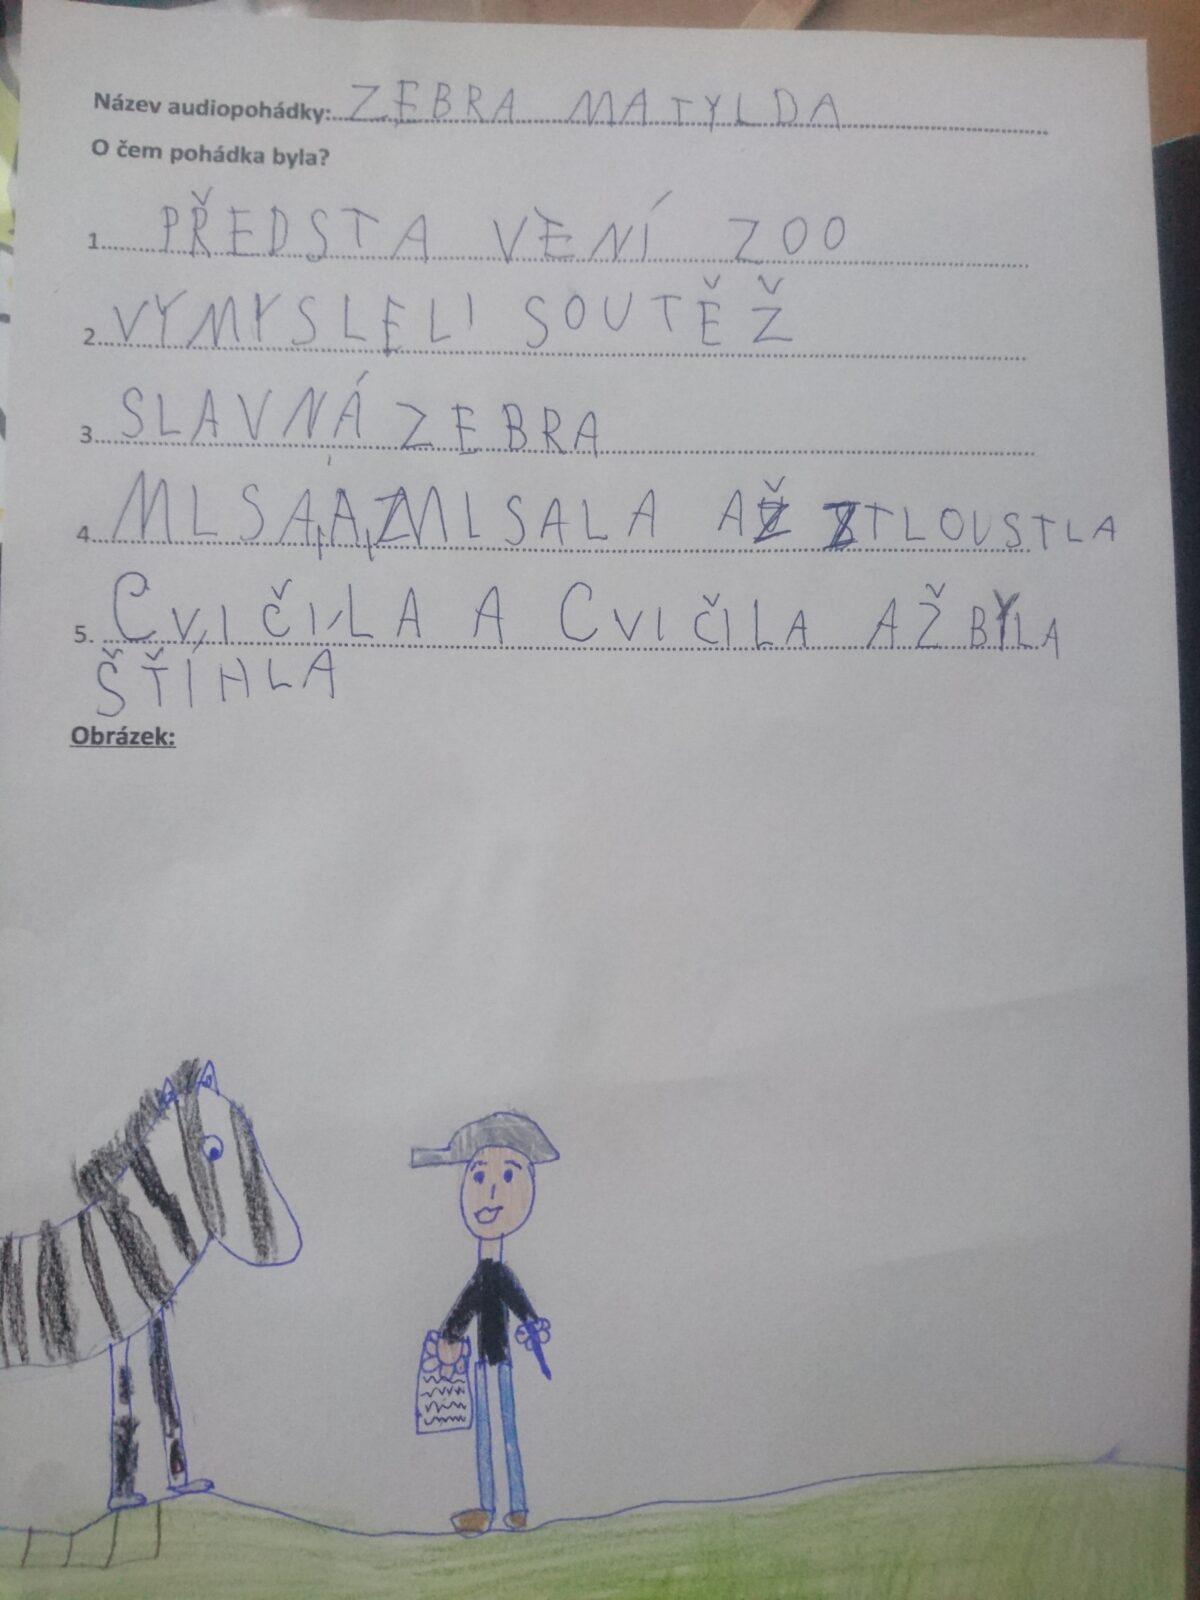 Název audiopohádky: ZEBRA MATYLDA
O čem pohádka byla?
1. PŘEDSTAVENÍ ZOO
2. VYMYSLELI SOUTĚŽ
3. SLAVNÁ ZEBRA
4. MLSA,A,MLSALA AŽ ZTLOUSTLA
5. CVIČILA A CVIČILA AŽ BYLA
ŠŤÍHLA
Obrázek: